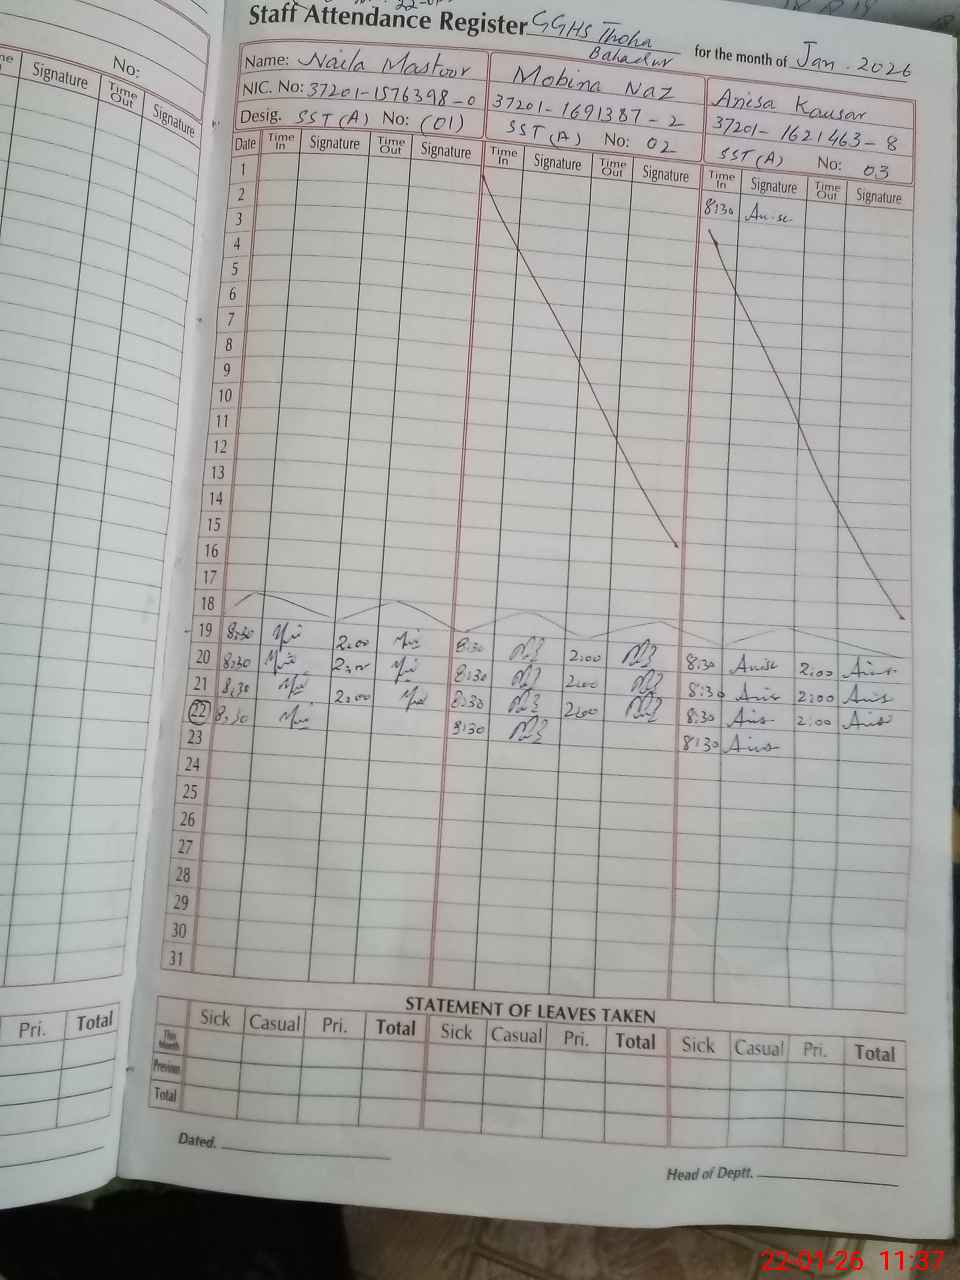 Staff Attendance Register GGHS Thoha Bahadur for the month of Jan. 2026
Name: Naila Mastoor Mobina Naz Anisa Kausar
NIC. No: 37201-1576398-0 37201-1691387-2 37201-1621463-8
Desig. SST(A) No: (01) SST(A) No: 02 SST(A) No: 03
Date Time In Signature Time Out Signature Time In Signature Time Out Signature Time In Signature Time Out Signature
No:
Signature Time Out Signature
1 8:30
2
3
4
5
6
7
8
9
10
11
12
13
14
15
16
17
18
19 8:30 2:00 8:30 2:00 8:30 2:00
20 8:30 2:00 8:30 2:00 8:30 2:00
21 8:30 2:00 8:30 2:00 8:30 2:00
22 8:30 8:30 8:30
23
24
25
26
27
28
29
30
31
STATEMENT OF LEAVES TAKEN
Pri. Total
Sick Casual Pri. Total Sick Casual Pri. Total Sick Casual Pri. Total
This Month
Previous
Total
Dated.
Head of Deptt.
22-01-26 11:37